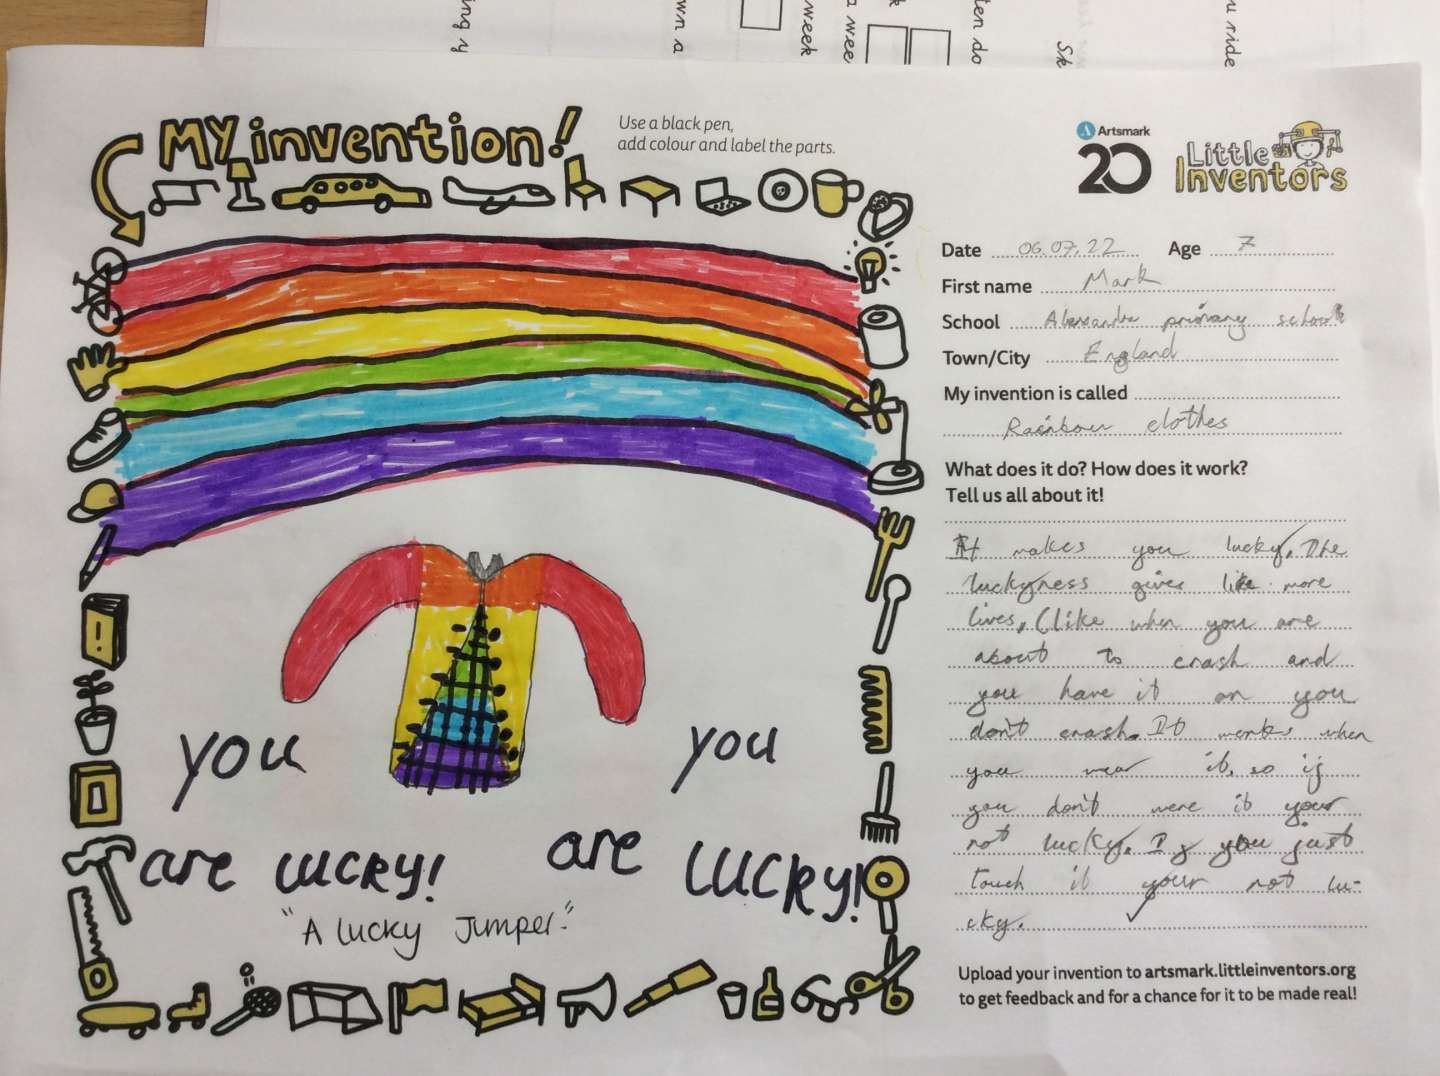 ing y
wn a
week
a wee
k
ten do
Sk
u ride
My invention!
Use a black pen,
add colour and label the parts.
Artsmark
20
Little
Inventors
Date 06.07.22 Age 7
First name Mark
School primary school
Town/City England
My invention is called
Rainbow clothes
What does it do? How does it work?
Tell us all about it!
It makes you lucky. The
luckyness gives like more
lives, (like when you are
about to crash and
you have it on you
don't crash. It works when
you wear it, so if
you don't were it your
not lucky. If you just
touch it your not lu-
cky.
Upload your invention to artsmark.littleinventors.org
to get feedback and for a chance for it to be made real!
you
are lucky!
you
are lucky!
"A lucky Jumper."